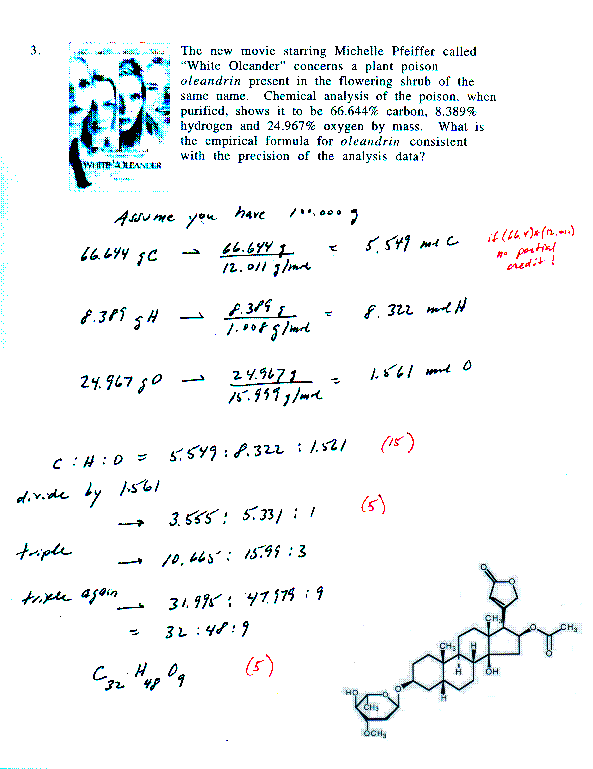 3.
The new movie starring Michelle Pfeiffer called
"White Oleander" concerns a plant poison
oleandrin present in the flowering shrub of the
same name. Chemical analysis of the poison, when
purified, shows it to be 66.644% carbon, 8.389%
hydrogen and 24.967% oxygen by mass. What is
the empirical formula for oleandrin consistent
with the precision of the analysis data?
WHITE OLEANDER
Assume you have 100.000 g
66.644 gC → 66.644 g / 12.011 g/mol = 5.549 mol C
if (66.4)×(12.011)
no partial
credit!
8.389 gH → 8.389 g / 1.008 g/mol = 8.322 mol H
24.967 gO → 24.967 g / 15.999 g/mol = 1.561 mol O
C : H : O = 5.549 : 8.322 : 1.521 (15)
divide by 1.561
→ 3.555 : 5.331 : 1 (5)
triple → 10.665 : 15.99 : 3
triple again → 31.995 : 47.979 : 9
= 32 : 48 : 9
C32 H48 O9 (5)
O
O
CH3
CH3
O
CH3
O
H
H
OH
H
O
HO
O
CH3
OCH3